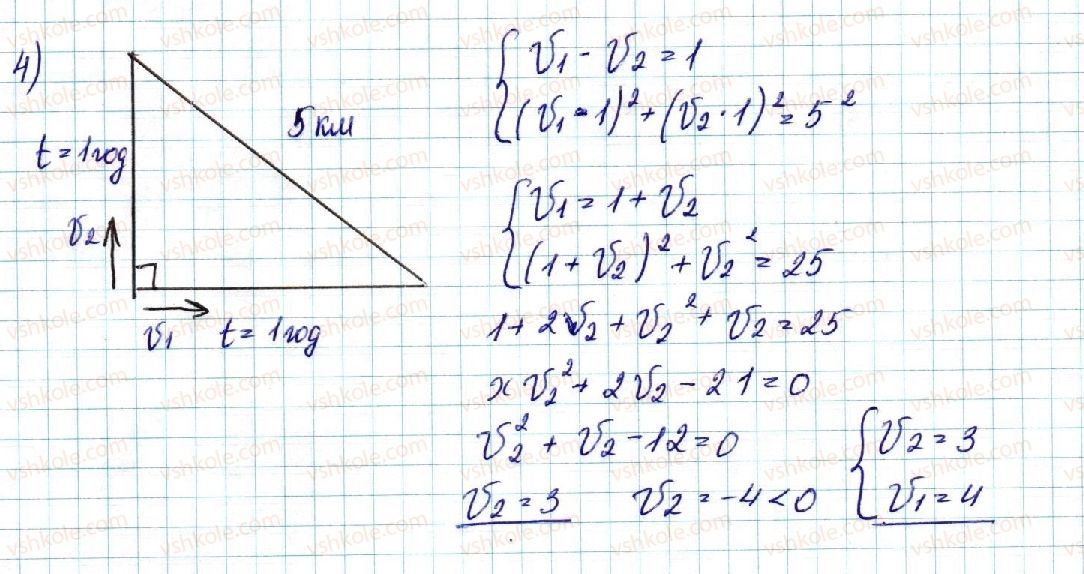 4)
5 км
t = 1 год
v₂
v₁ t = 1 год
{ v₁ - v₂ = 1
{ (v₁ · 1)² + (v₂ · 1)² = 5²
{ v₁ = 1 + v₂
{ (1 + v₂)² + v₂² = 25
1 + 2v₂ + v₂² + v₂ = 25
x v₂² + 2v₂ - 21 = 0
v₂² + v₂ - 12 = 0
v₂ = 3 v₂ = -4 < 0
{ v₂ = 3
{ v₁ = 4
vshkole.com